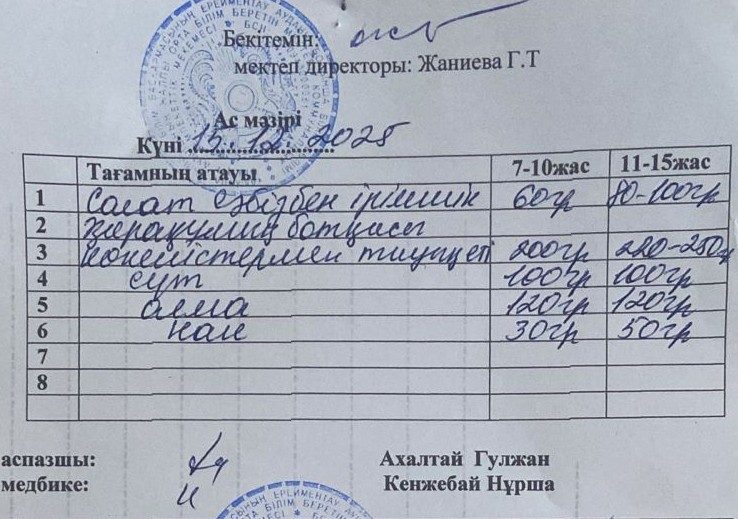 Бекітемін:
мектеп директоры: Жаниева Г.Т
Ас мәзірі
Күні 15.12.2025
Тағамның атауы 7-10жас 11-15жас
1 Салат сәбізбен ірімшік 60гр 80-100гр
2 Қарақұмық ботқасы
3 көкөністермен 200гр 220-250гр
4 сүт 100гр 100гр
5 алма 120гр 120гр
6 нан 30гр 50гр
7
8
аспазшы: Ахалтай Гулжан
медбике: Кенжебай Нұрша